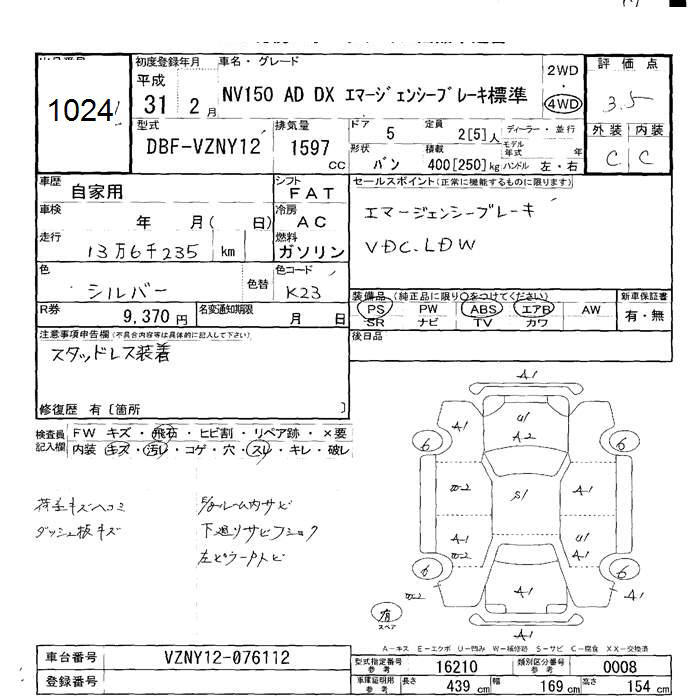 1024
初度登録年月
平成
31 2 月
車名・グレード
NV150 AD DX エマージェンシーブレーキ標準
2WD
・
4WD
評価点
3.5
外装 内装
C C
型式
DBF-VZNY12
排気量
1597
CC
ドア
5
定員
2[5]人
ディーラー・並行
形状
バン
積載
400[250]kg
モデル年式
年
ハンドル 左・右
車歴
自家用
シフト
FAT
車検
年 月( 日)
冷房
AC
走行
13万6千235 km
燃料
ガソリン
セールスポイント(正常に機能するものに限ります)
エマージェンシーブレーキ
VDC.LDW
色
シルバー
色替
色コード
K23
R券
9,370円
名変通知期限
月 日
装備品 (純正品に限り○をつけてください)
PS PW ABS エアB AW
SR ナビ TV カワ
新車保証書
有・無
後日品
注意事項申告欄(不具合内容等は具体的に記入して下さい)
スタッドレス装着
修復歴 有 [箇所 ]
検査員記入欄
FW キズ・飛石・ヒビ割・リペア跡・×要
内装 キズ・汚レ・コゲ・穴・スレ・キレ・破レ
荷室キズヘコミ
ダッシュ板キズ
ルーム内サビ
下廻りサビ
A1
A1
U1
A2
6
6
W2
S1
A1
A1
W2
U1
A1
6
6
W2
A1
A1
A1
有
スペア
A-キズ E-エクボ U-凹み W-補修跡 S-サビ C-腐食 XX-交換済
車台番号
VZNY12-076112
登録番号
型式指定番号
参考
16210
類別区分番号
参考
0008
車庫証明用
参考
長さ
439 cm
幅
169 cm
高さ
154 cm